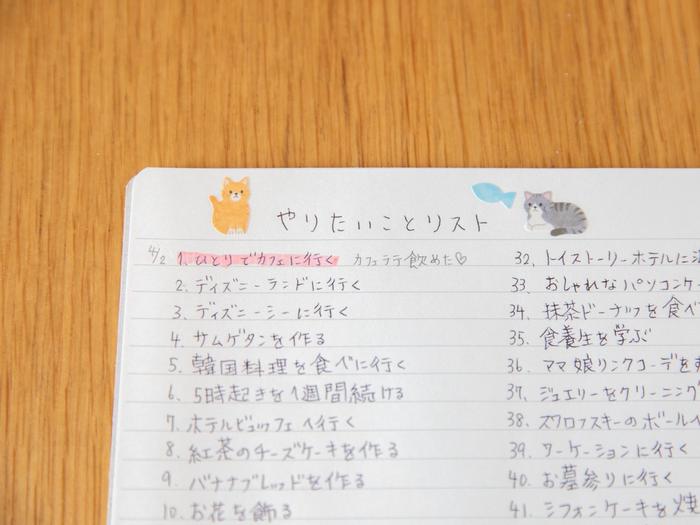 やりたいことリスト
4/2 1. ひとりでカフェに行く カフェラテ飲めた♡
2. ディズニーランドに行く
3. ディズニーシーに行く
4. サムゲタンを作る
5. 韓国料理を食べに行く
6. 5時起きを1週間続ける
7. ホテルビュッフェへ行く
8. 紅茶のチーズケーキを作る
9. バナナブレッドを作る
10. お花を飾る
32. トイストーリーホテルに
33. おしゃれなパソコンケ
34. 抹茶ドーナッツを食べ
35. 食養生を学ぶ
36. ママ娘リンクコーデを
37. ジュエリーをクリーニング
38. スワロフスキーのボールペ
39. ワーケーションに行く
40. お墓参りに行く
41. シフォンケーキを焼